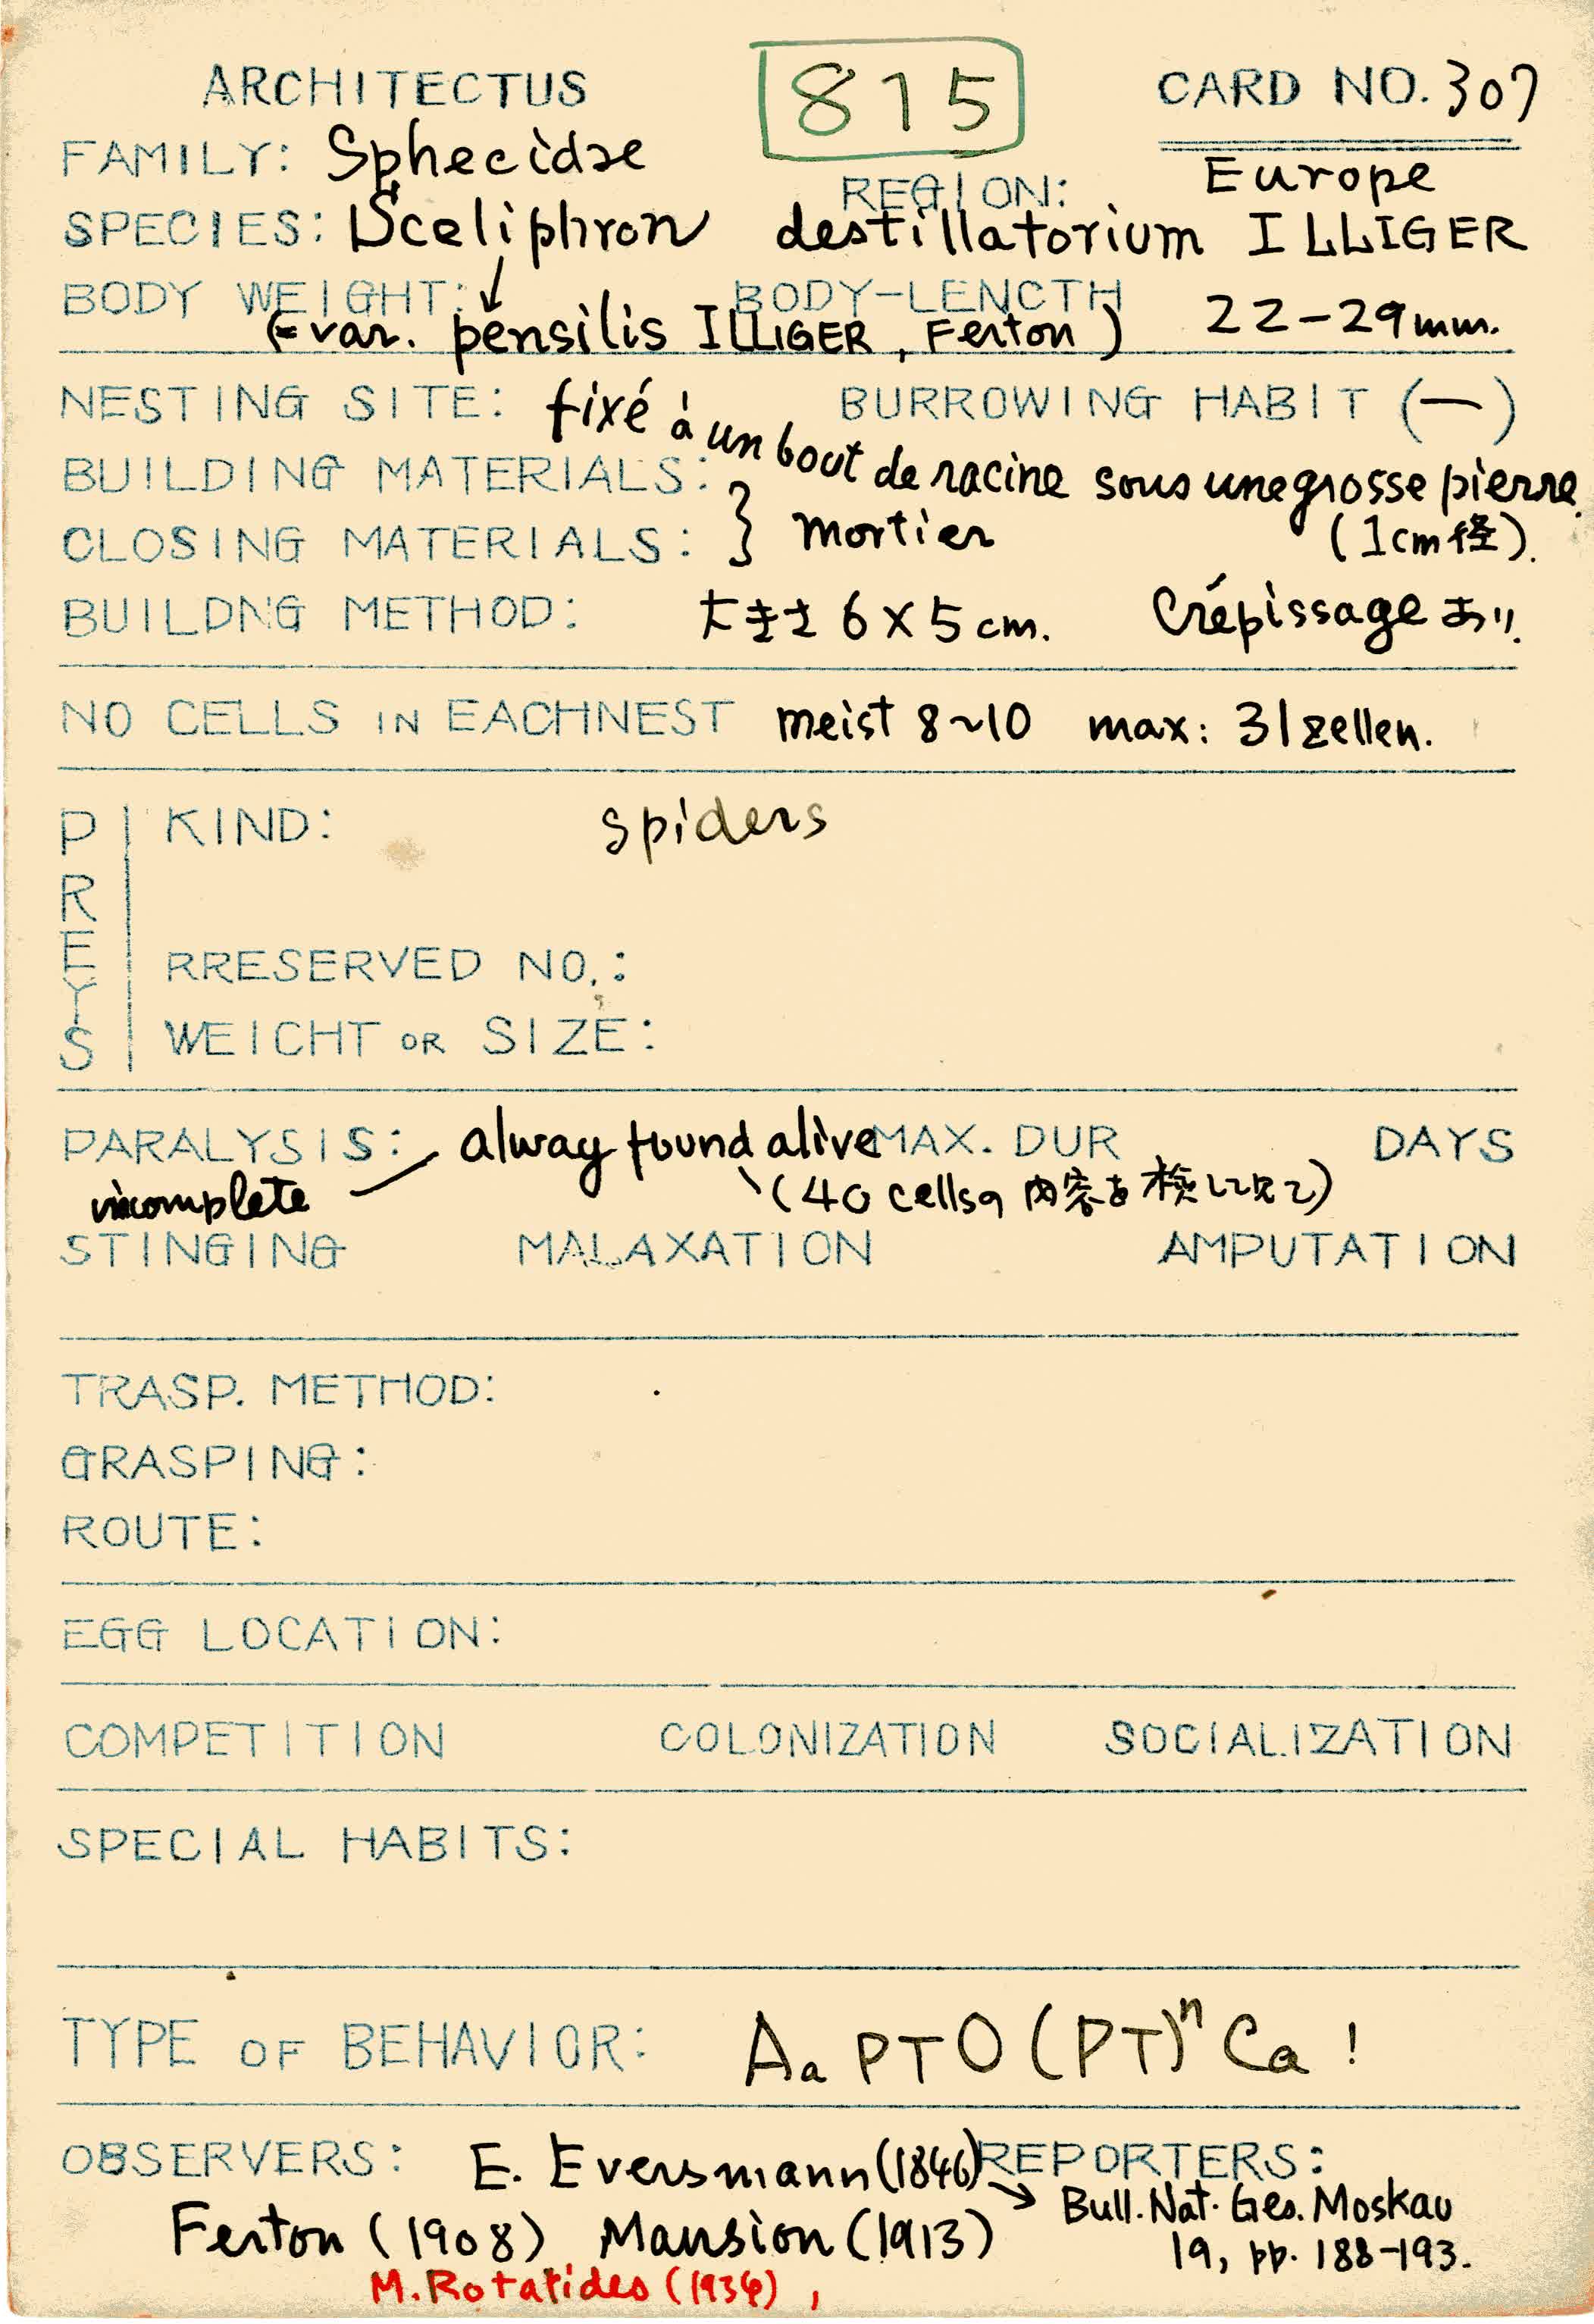 ARCHITECTUS 815 CARD NO. 307
FAMILY: Sphecidae REGION: Europe
SPECIES: Sceliphron destillatorium ILLIGER
BODY WEIGHT: BODY-LENCTH 22-29mm.
(=var. pensilis ILLIGER, Ferton)
NESTING SITE: fixé à un bout de racine sous une grosse pierre.
BURROWING HABIT (—)
BUILDING MATERIALS: (1cm径).
CLOSING MATERIALS: } mortier
BUILDNG METHOD: 大キサ 6×5cm. Crépissageあり.
NO CELLS IN EACHNEST meist 8~10 max: 31 zellen.
PREYS
KIND: spiders
RRESERVED NO.:
WEICHT OR SIZE:
PARALYSIS: alway found alive MAX. DUR DAYS
incomplete (40 cellsの内容を検して)
STINGING MALAXATION AMPUTATION
TRASP. METHOD:
GRASPING:
ROUTE:
EGG LOCATION:
COMPETITION COLONIZATION SOCIALIZATION
SPECIAL HABITS:
TYPE OF BEHAVIOR: Aa PTO(PT)ⁿ Ca !
OBSERVERS: E. Eversmann (1846) REPORTERS:
→ Bull. Nat. Ges. Moskau
Ferton (1908) Mansion (1913) 19, pp. 188-193.
M. Rotarides (1936),